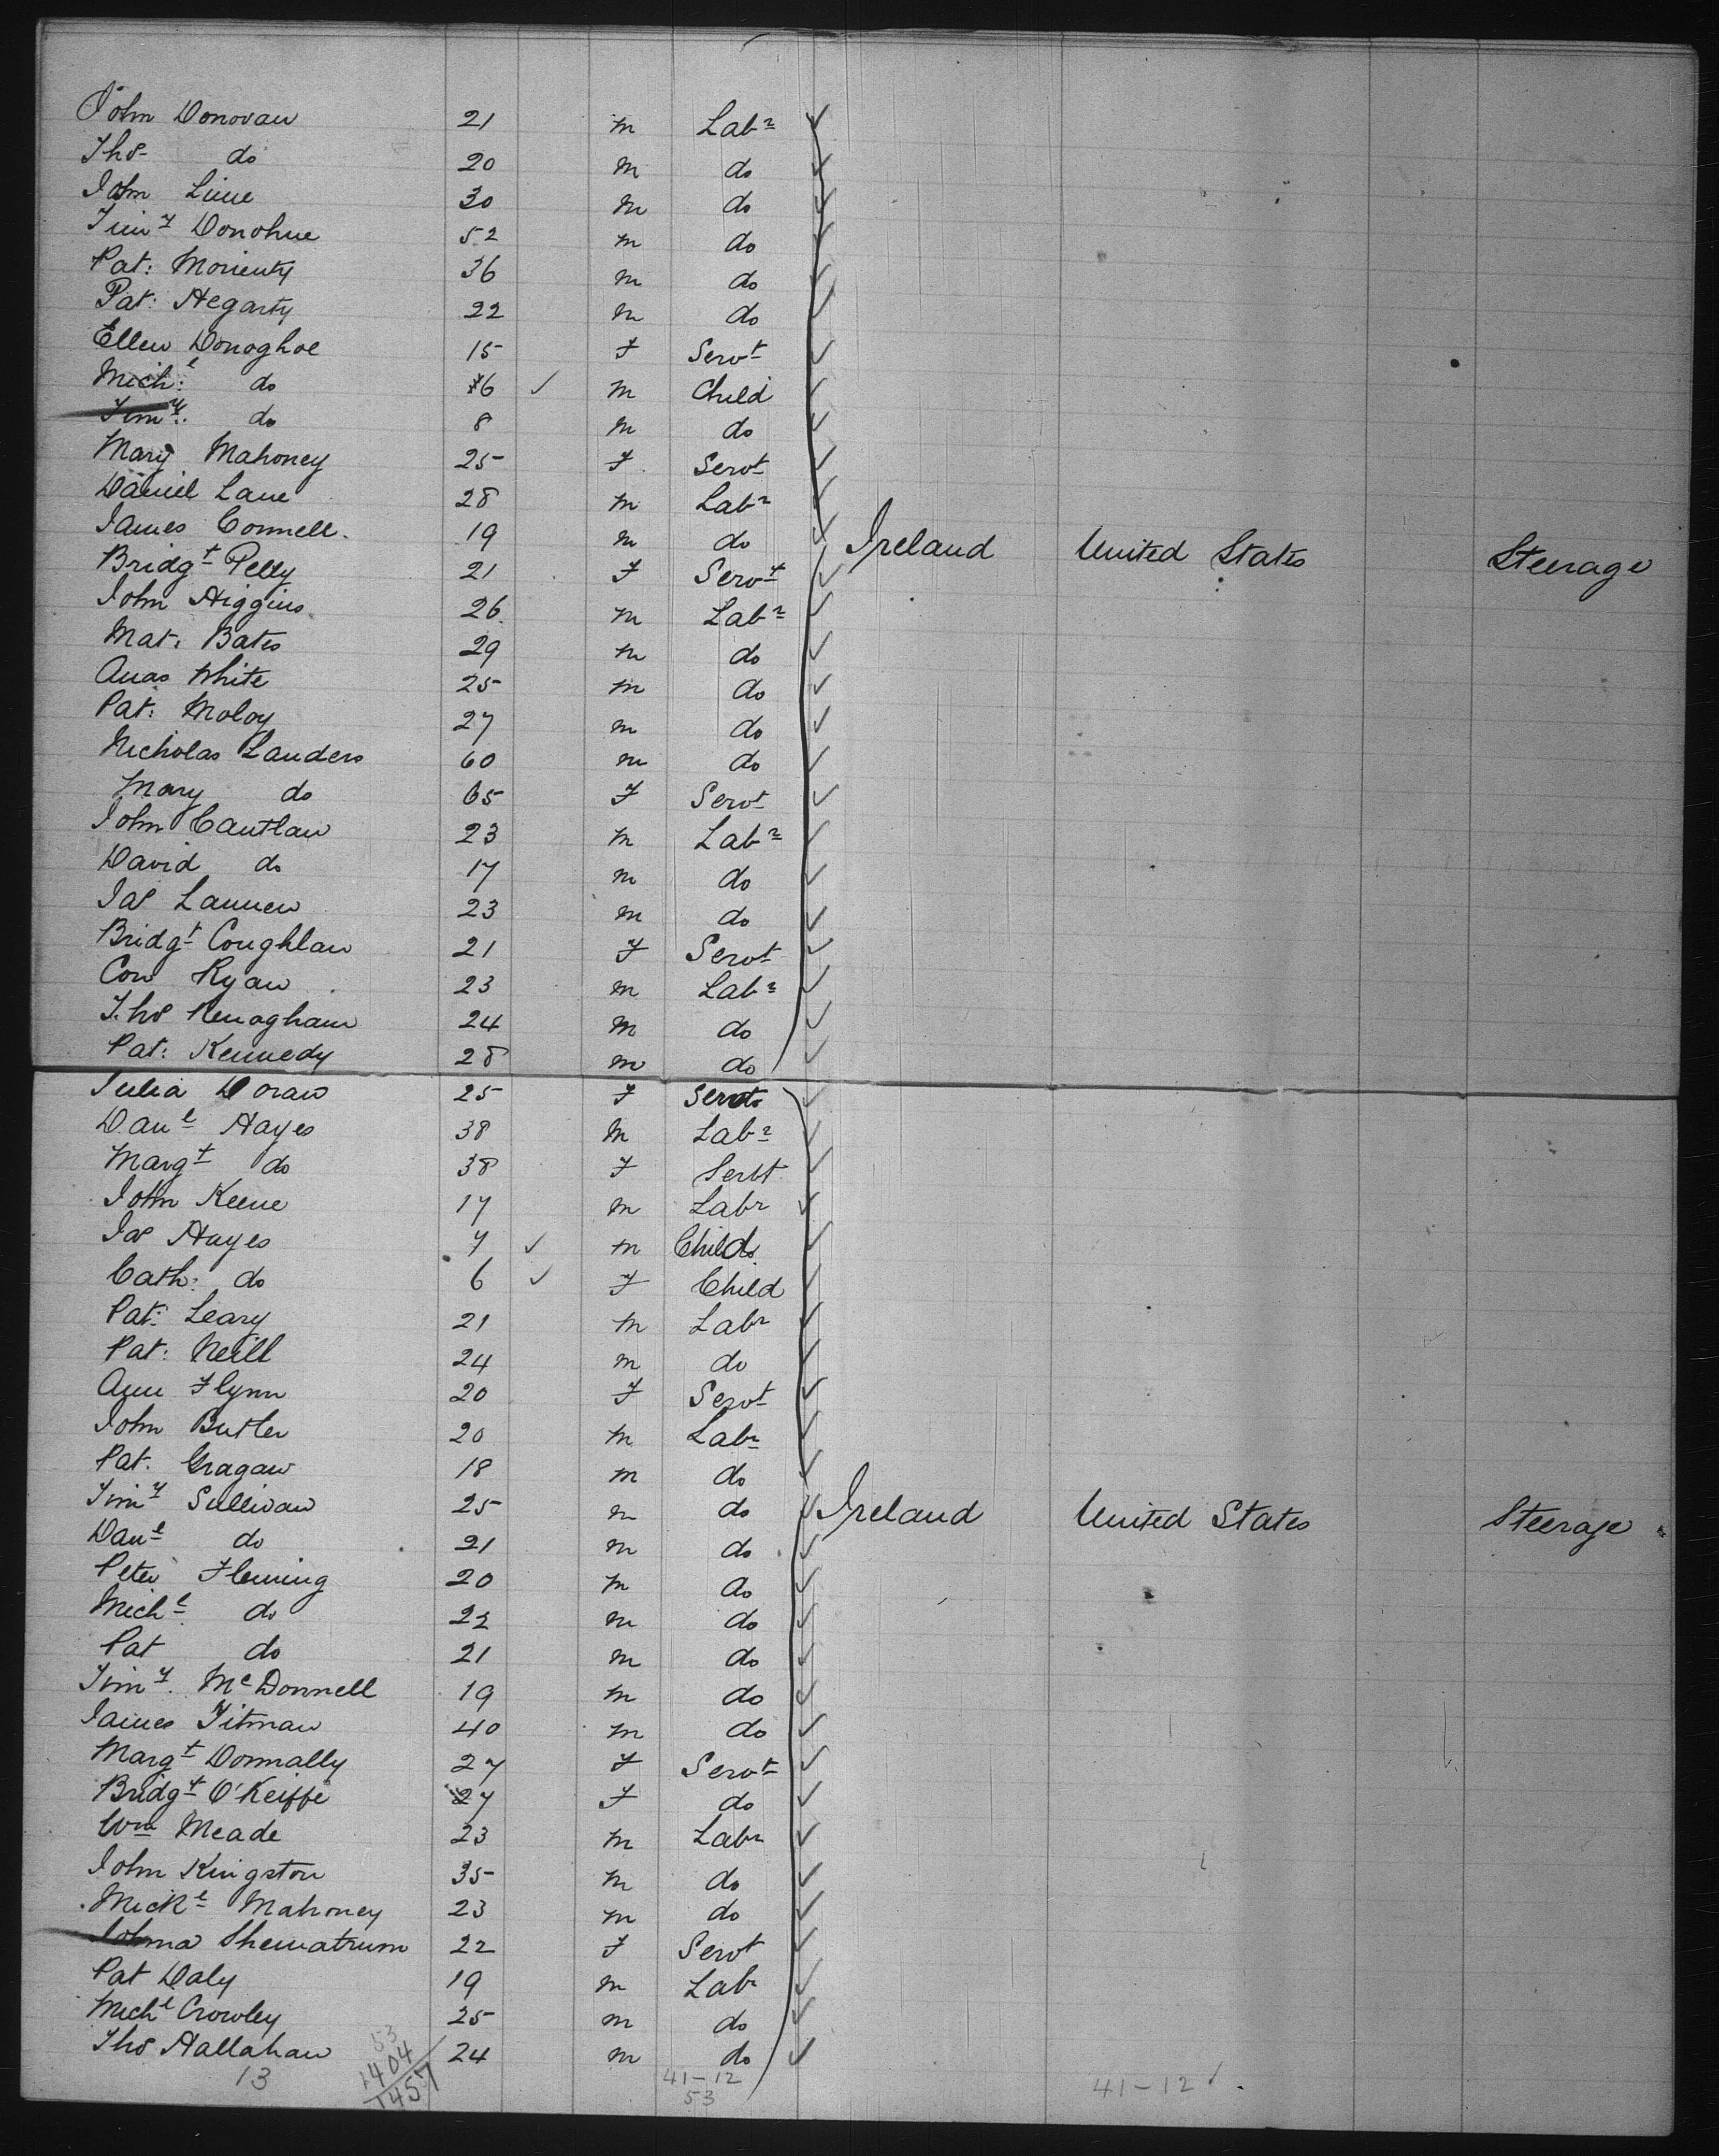 John Donovan 21 m Labr
Thos do 20 m do
John Line 30 m do
Timy Donohue 52 m do
Pat: Morienty 36 m do
Pat: Hegarty 22 m do
Ellen Donoghoe 15 F Servt
Michl: do 6 ✓ m Child
Timy: do 8 m do
Mary Mahoney 25 F Servt
Daniel Lane 28 m Labr
James Connell. 19 m do Ireland United States Steerage
Bridgt Pelly 21 F Servt
John Higgins 26 m Labr
Mat: Bates 29 m do
Anas White 25 m do
Pat: Moloy 27 m do
Nicholas Landers 60 m do
Mary do 65 F Servt
John Cantlan 23 m Labr
David do 17 m do
Jas Lannen 23 m do
Bridgt Coughlan 21 F Servt
Con Ryan 23 m Labr
Thos 24 m do
Pat: Kennedy 28 m do
Julia Doran 25 F Servt
Danl Hayes 38 m Labr
Margt do 38 F Servt
John Keene 17 m Labr
Jas Hayes 7 ✓ m Child
Cath: do 6 ✓ F Child
Pat: Leary 21 m Labr
Pat: Neill 24 m do
Ann Flynn 20 F Servt
John Butler 20 m Labr
Pat. Gragan 18 m do
Timy Sullivan 25 m do Ireland United States Steerage
Danl do 21 m do
Peter Fleming 20 m do
Michl do 22 m do
Pat do 21 m do
Timy. McDonnell 19 m do
James Titman 40 m do
Margt Donnally 27 F Servt
Bridgt O'Keiffe 27 F do
Wm Meade 23 m Labr
John Kingston 35 m do
Mickl Mahoney 23 m do
Johna Shewatrum 22 F Servt
Pat Daly 19 m Labr
Michl Crowley 25 m do
Thos Hallahan 24 m do
13 53 1404 1457 41-12 53 41-12 ✓